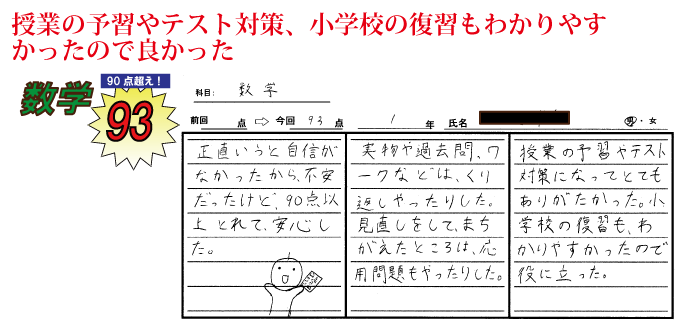 授業の予習やテスト対策、小学校の復習もわかりやす
かったので良かった
数学
90点超え!
93
科目: 数学
前回 点 ⇨ 今回 93 点 1 年 氏名 男・女
正直いうと自信が
なかったから、不安
だったけど、90点以
上とれて、安心し
た。
実物や過去問、ワ
ークなどは、くり
返しやったりした。
見直しをして、まち
がえたところは、応
用問題もやったりした。
授業の予習やテスト
対策になってとても
ありがたかった。小
学校の復習も、わ
かりやすかったので
役に立った。